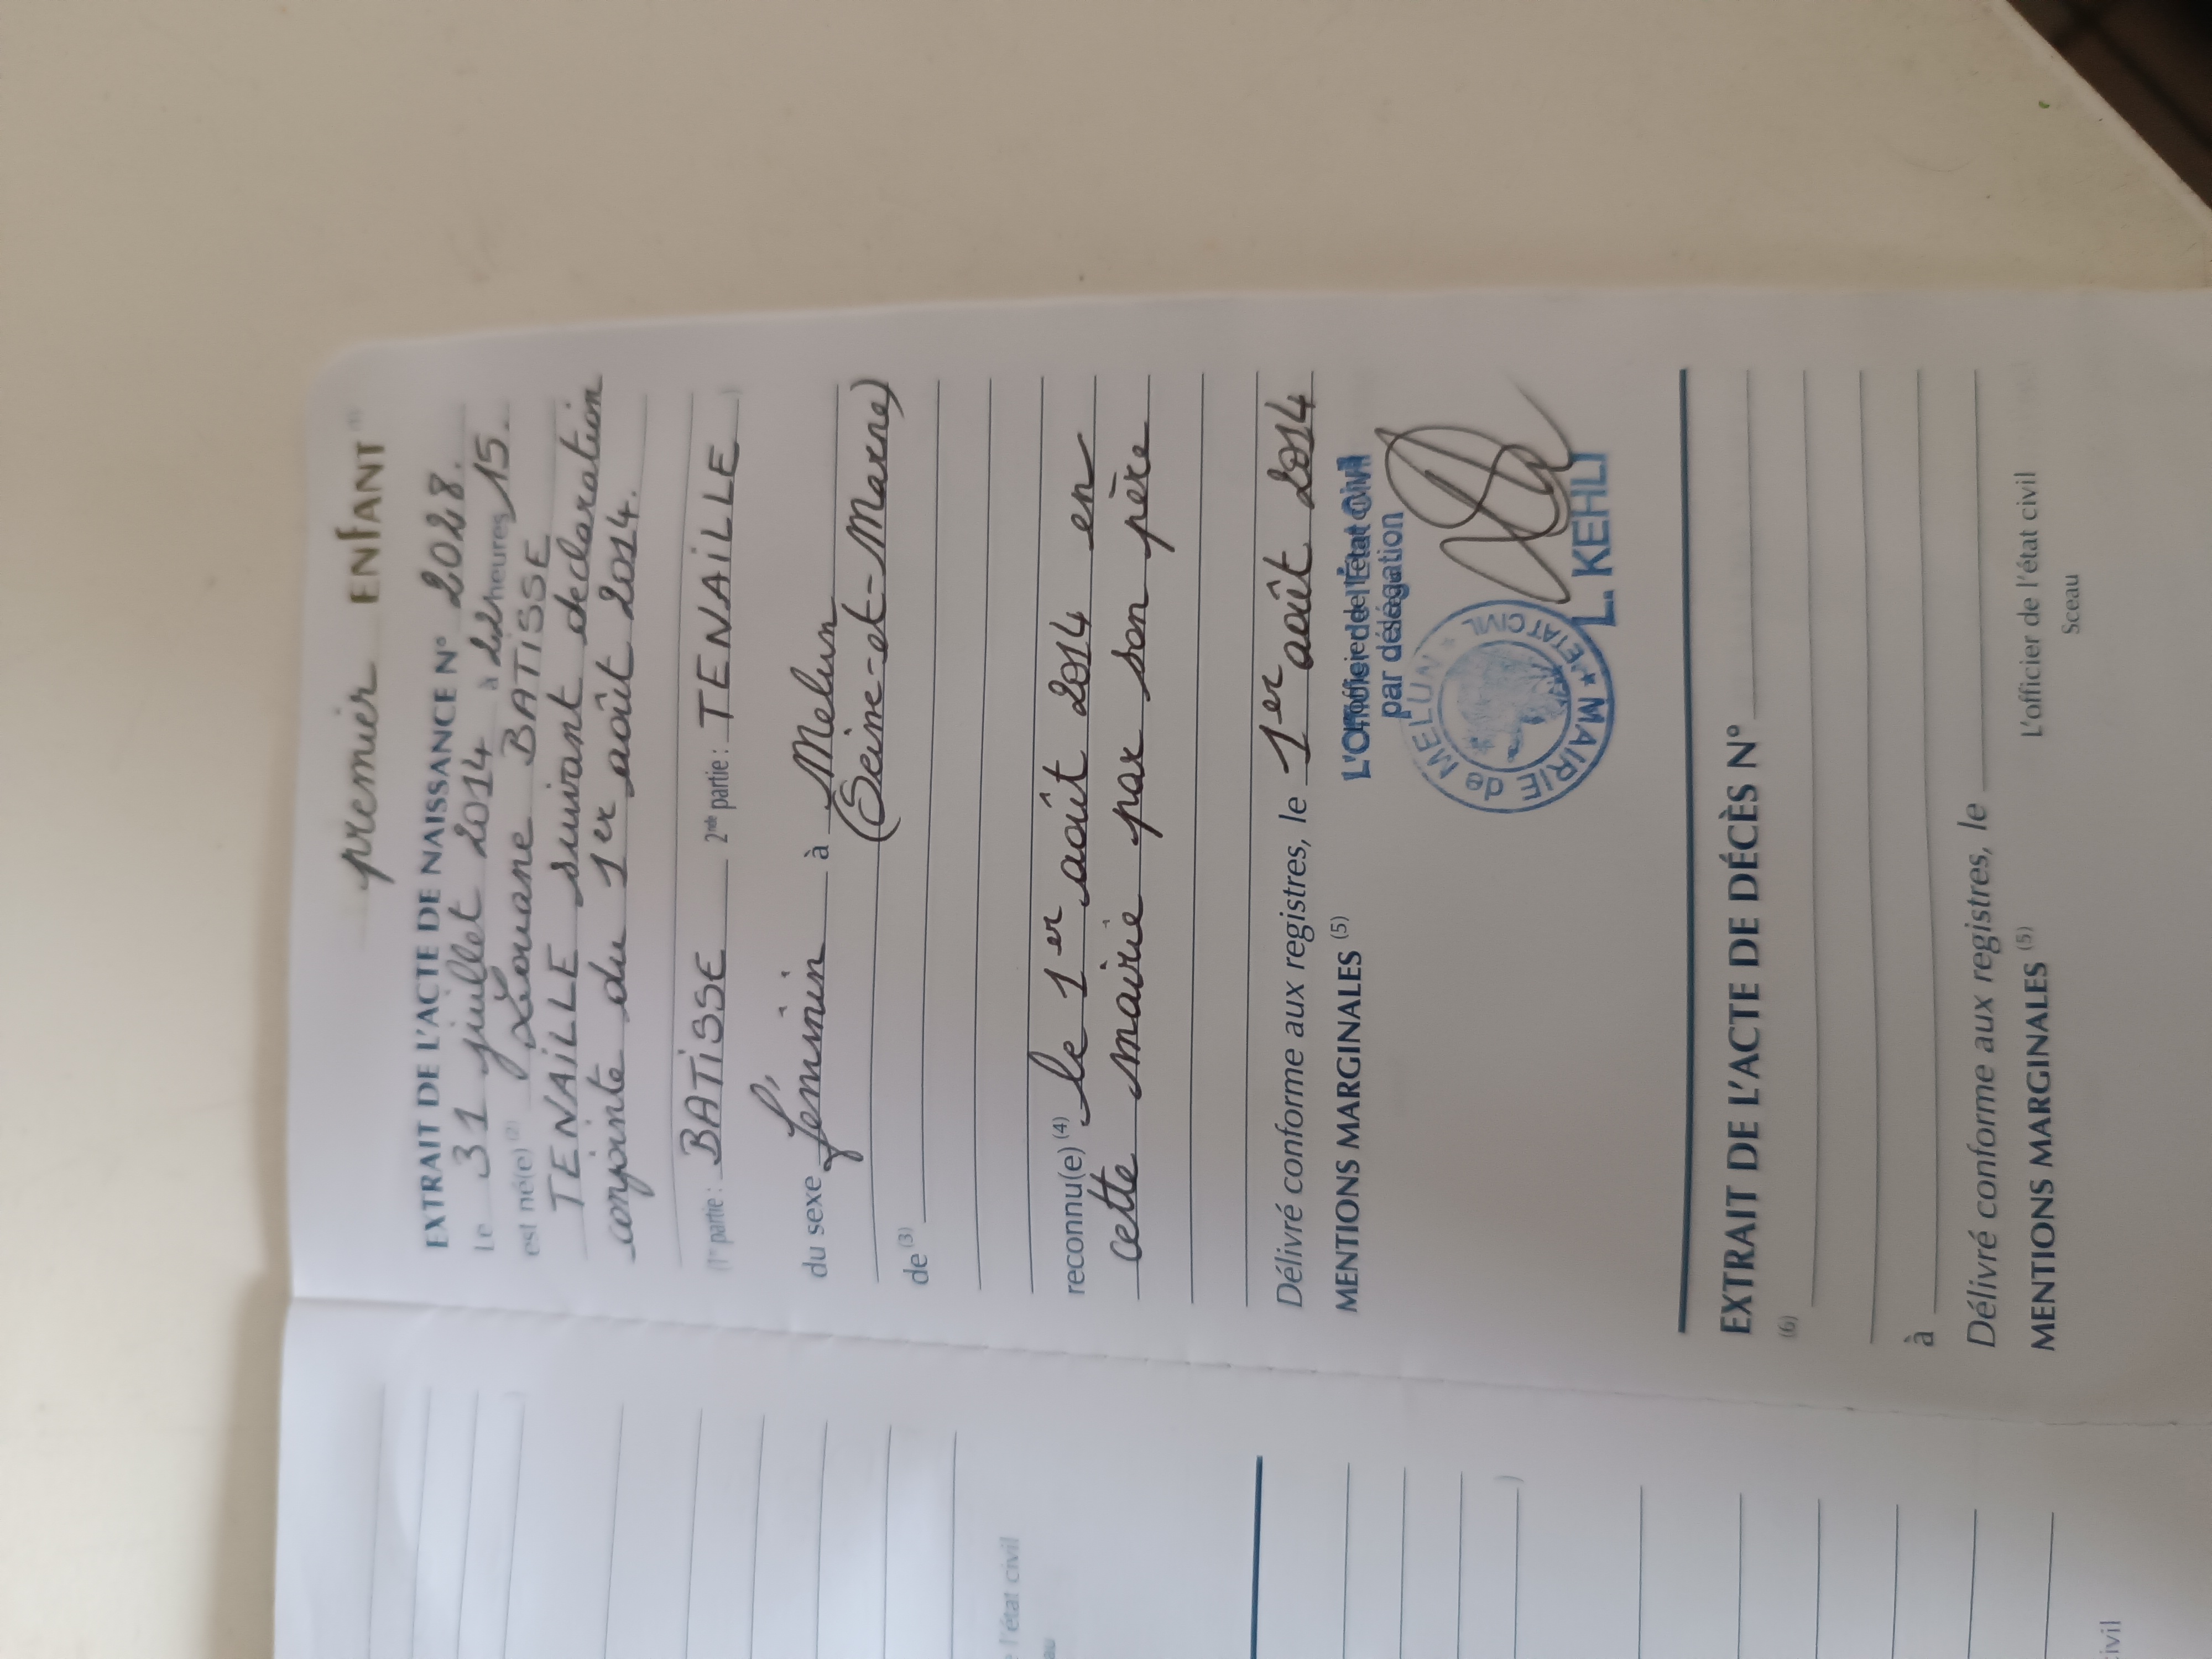 premier ENFANT (1)
EXTRAIT DE L'ACTE DE NAISSANCE N° 2028.
Le 31 juillet 2014 à 22 heures 15.
est né(e) (2) Louane BATISSE
TENAILLE suivant declaration
conjointe du 1er août 2014.
(1re partie : BATISSE 2nde partie : TENAILLE )
du sexe féminin à Melun
(Seine-et-Marne)
de (3)
reconnu(e) (4) le 1er août 2014 en
cette mairie par son père
Délivré conforme aux registres, le 1er août 2014
MENTIONS MARGINALES (5)
L'Officier de l'État Civil
par délégation
MAIRIE de MELUN * ETAT CIVIL *
L. KEHLI
EXTRAIT DE L'ACTE DE DÉCÈS N°
(6)
à
Délivré conforme aux registres, le
MENTIONS MARGINALES (5)
L'officier de l'état civil
Sceau
l'état civil
civil